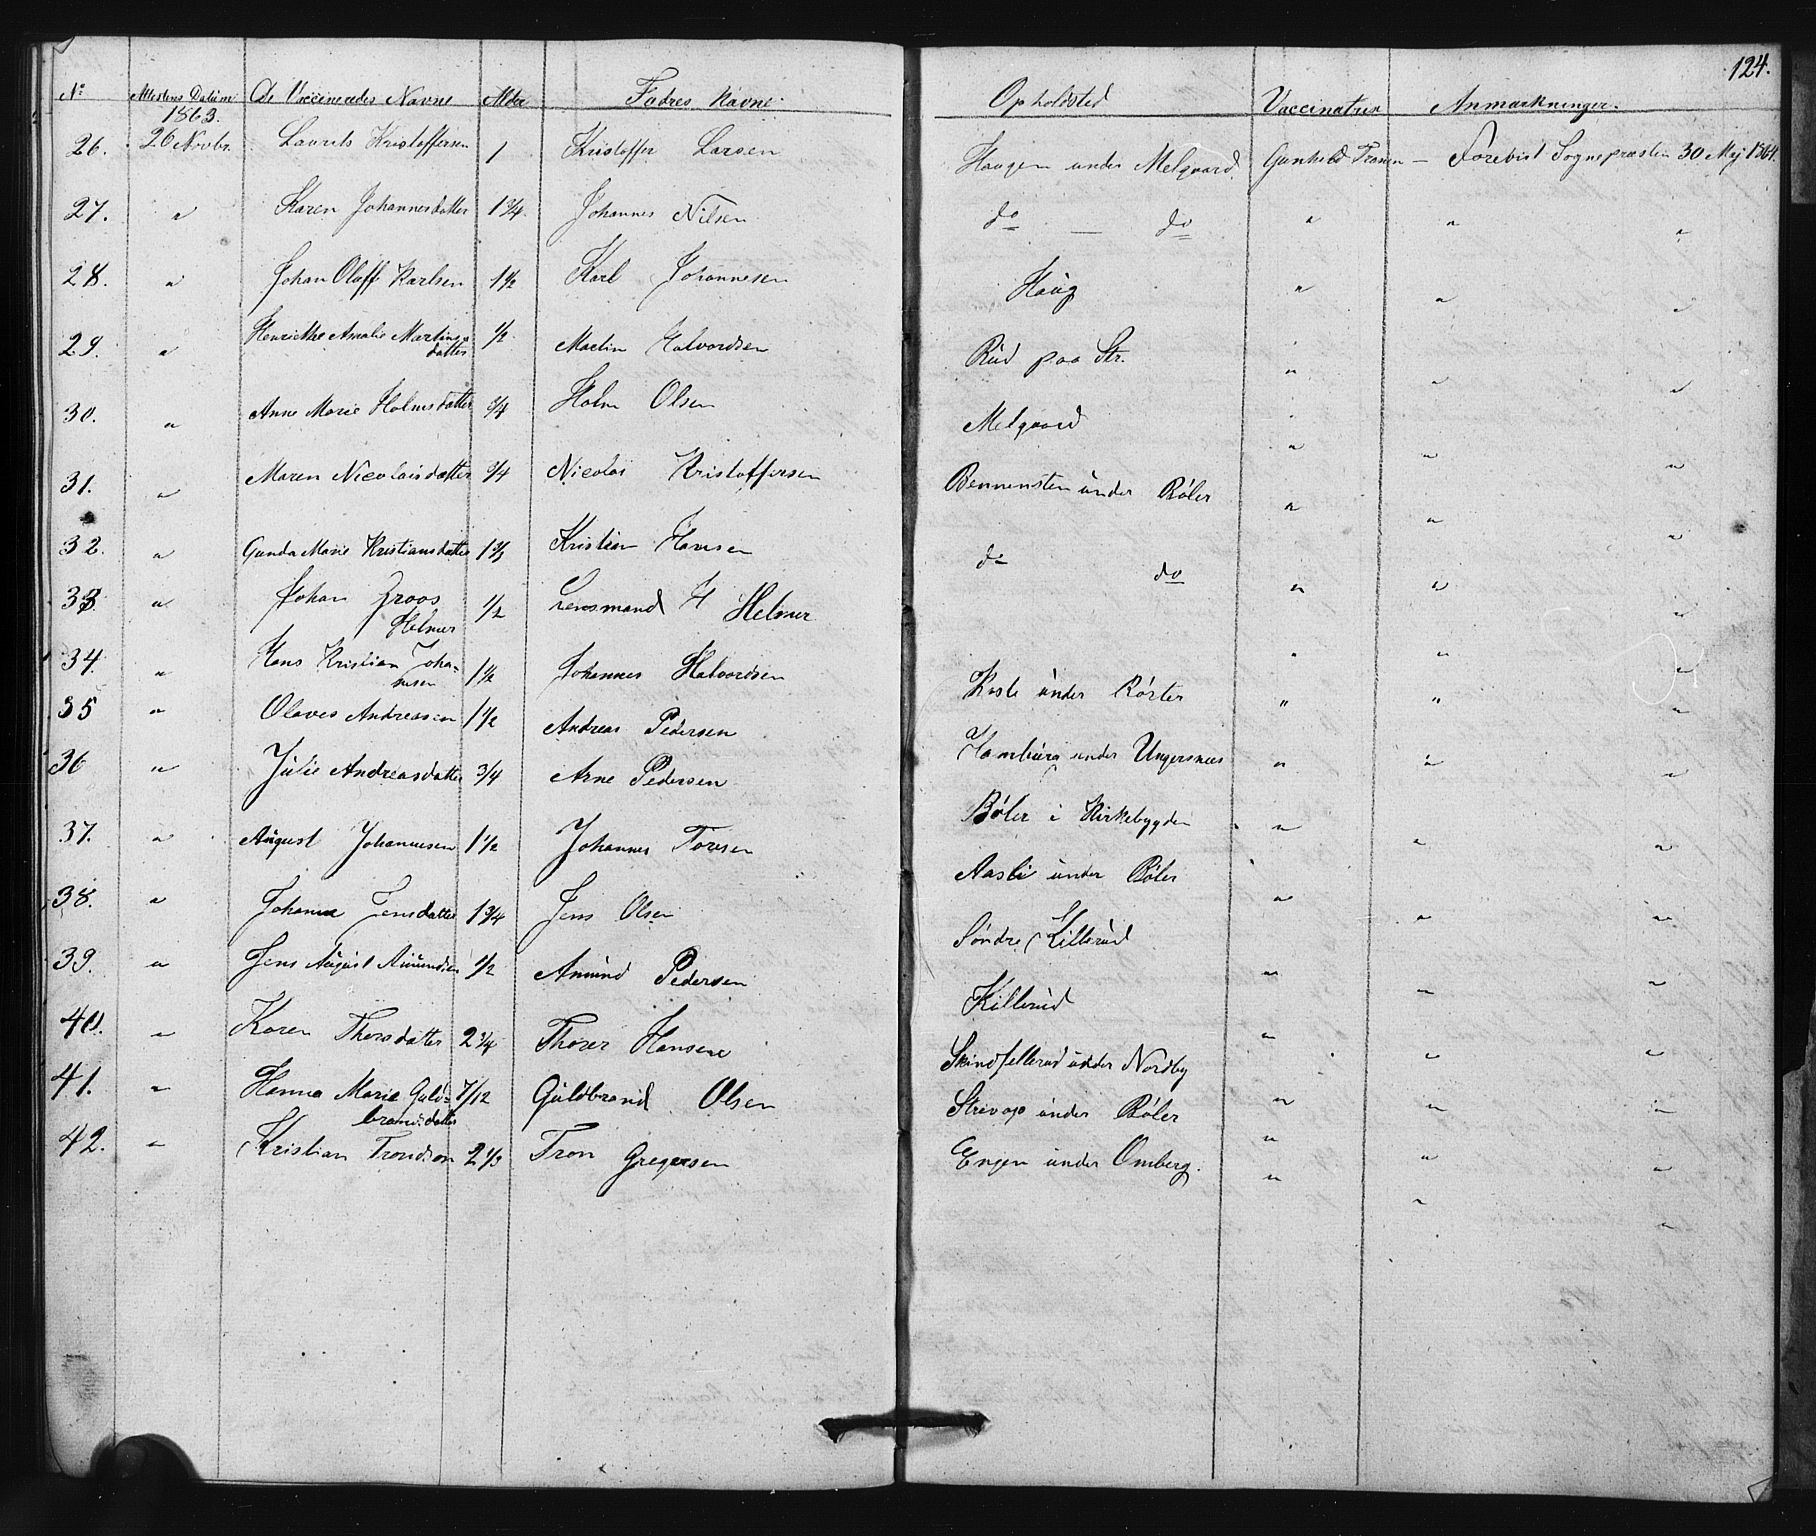 124.
No Attestens Datum De Vaccineredes Navne Alder Fadres Navne Opholdsted Vaccinatrix Anmærkninger.
1863.
26. 26 Novbr. Laurits Kristoffersen 1 Kristoffer Larsen Haugen under Melgaard Gunhild Tranen — Forevist Sognepræsten 30 Maj 1864.
27. " Karen Johannesdatter 1 3/4 Johannes Nilsen do — do " " "
28. " Johan Oluff Karlsen 1 1/2 Karl Johannesen Haug " " "
29. " Henriette Amalie Martins= 1/2 Martin Halvordsen Rud paa Str. " " "
datter
30. " Anne Marie Holmsdatter 3/4 Holm Olsen Melgaard " " "
31. " Maren Nicolaisdatter 3/4 Nicolai Kristoffersen Bennensten under Bøler " " "
32. " Gunda Marie Kristiansdatter 1 2/3 Kristian Hansen do do " " "
33. " Johan Groos 1/2 Lensmand H Helmer " " "
Helmer
34. " Hans Kristian Joha- 1 1/2 Johannes Halvordsen under Rørter " " "
nesen
35 " Olaves Andreasen 1 1/2 Andreas Pedersen Hamburg under Ungersnes " " "
36 " Julie Andreasdatter 3/4 Arne Pedersen Bøler i Kirkebygden " " "
37. " August Johannesen 1 1/2 Johannes Toresen Aasli under Bøler " " "
38. " Johanne Jensdatter 1 3/4 Jens Olsen Søndre Killerud " " "
39. " Jens August Amundsen 1/2 Amund Pedersen Killerud " " "
40. " Karen Thorsdatter 2 1/4 Thorer Hansen Skindfellerud under Nordby " " "
41. " Hanna Marie Guld= 7/12 Guldbrand Olsen under Bøler " " "
brandsdatter
42. " Kristian Trondsen 2 1/3 Tron Gregersen Engen under Omberg. " " "